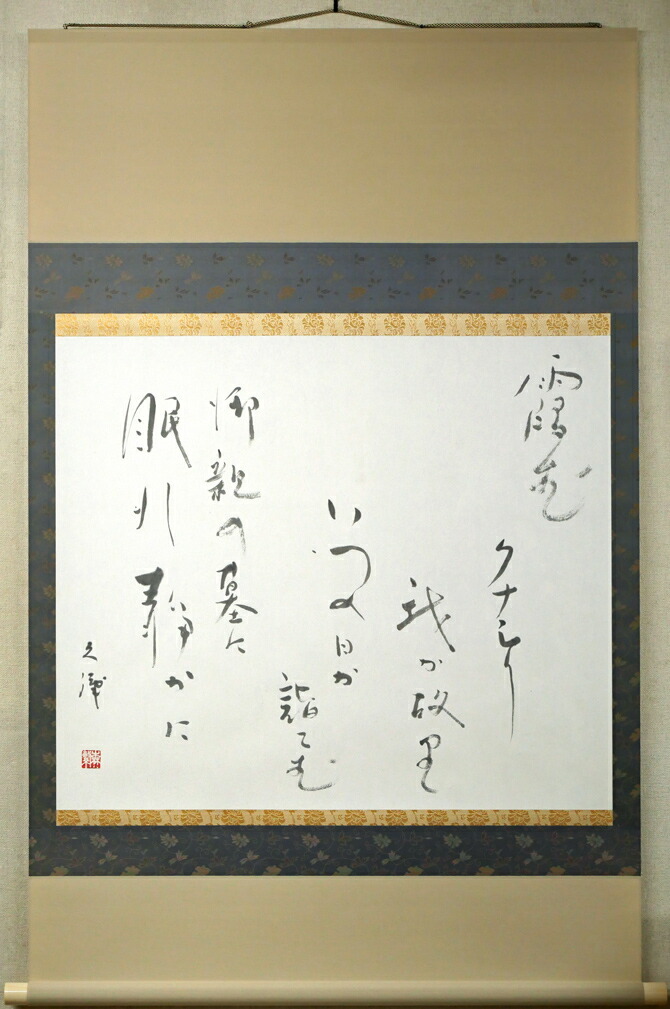 霞む
クナシリ
我が故里
いつの日か
詣てむ
御親の墓に
眠れ静かに
久